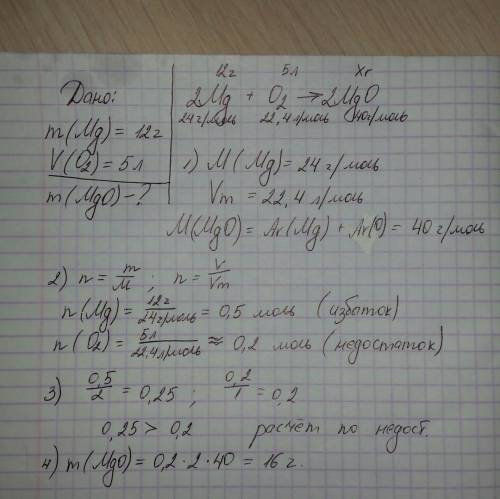 Дано:
m(Mg) = 12г
V(O₂) = 5л
m(MgO) - ?
12г 5л Xг
2Mg + O₂ → 2MgO
24г/моль 22,4л/моль 40г/моль
1) M(Mg) = 24 г/моль
Vm = 22,4 л/моль
M(MgO) = Ar(Mg) + Ar(O) = 40 г/моль
2) n = m/M ; n = V/Vm
n(Mg) = 12г/24г/моль = 0,5 моль (избаток)
n(O₂) = 5л/22,4л/моль ≈ 0,2 моль (недостаток)
3) 0,5/2 = 0,25 ; 0,2/1 = 0,2
0,25 > 0,2 расчёт по недост.
4) m(MgO) = 0,2 · 2 · 40 = 16 г.